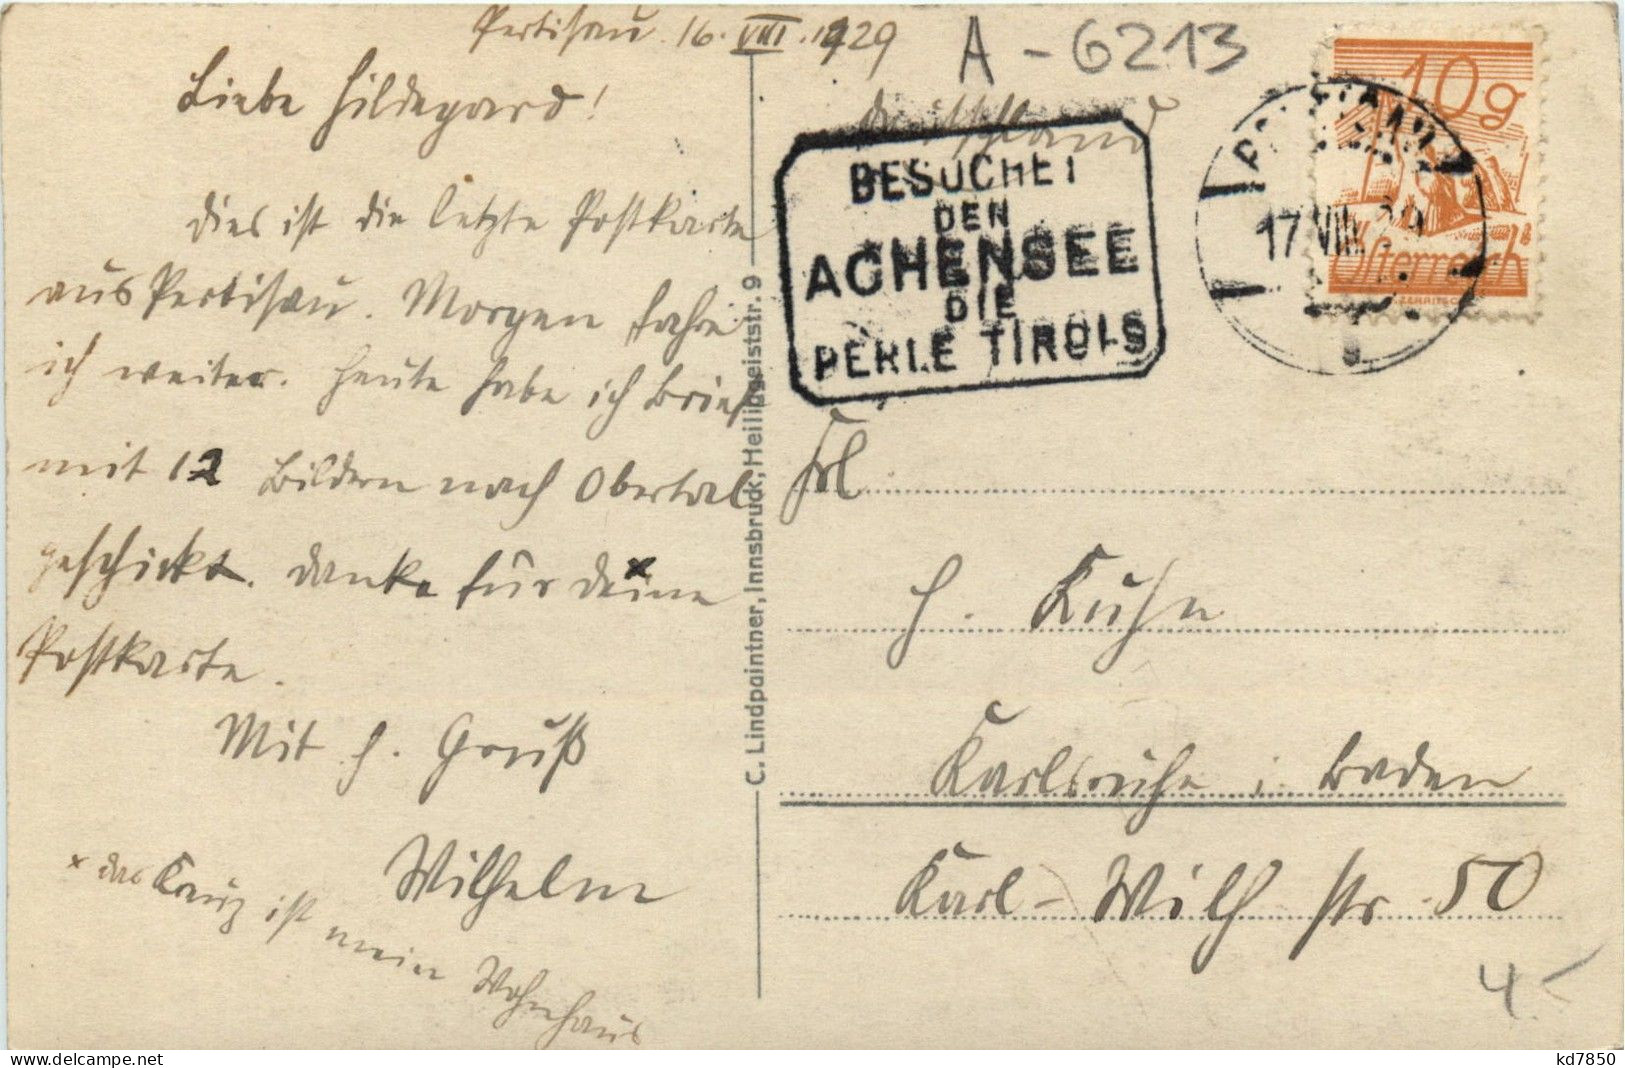 Pertisau. 16. VIII. 1929
Liebe Hildegard!
dies ist die letzte Postkarte
aus Pertisau. Morgen fahre
ich weiter. Heute habe ich Brief
mit 12 Bildern nach Obertal
geschickt. danke für deine
Postkarte.
Mit h. Gruß
Wilhelm
x das Kreuz ist mein Wohnhaus
C. Lindpaintner, Innsbruck, Heiliggeiststr. 9
A - 6213
Deutschland
BESUCHET
DEN
ACHENSEE
DIE
PERLE TIROLS
10g
Österreich
17 VIII 29
Frl
H. Kuhn
Karlsruhe i. Baden
Karl-Wilh str. 50
4.-
kd7850